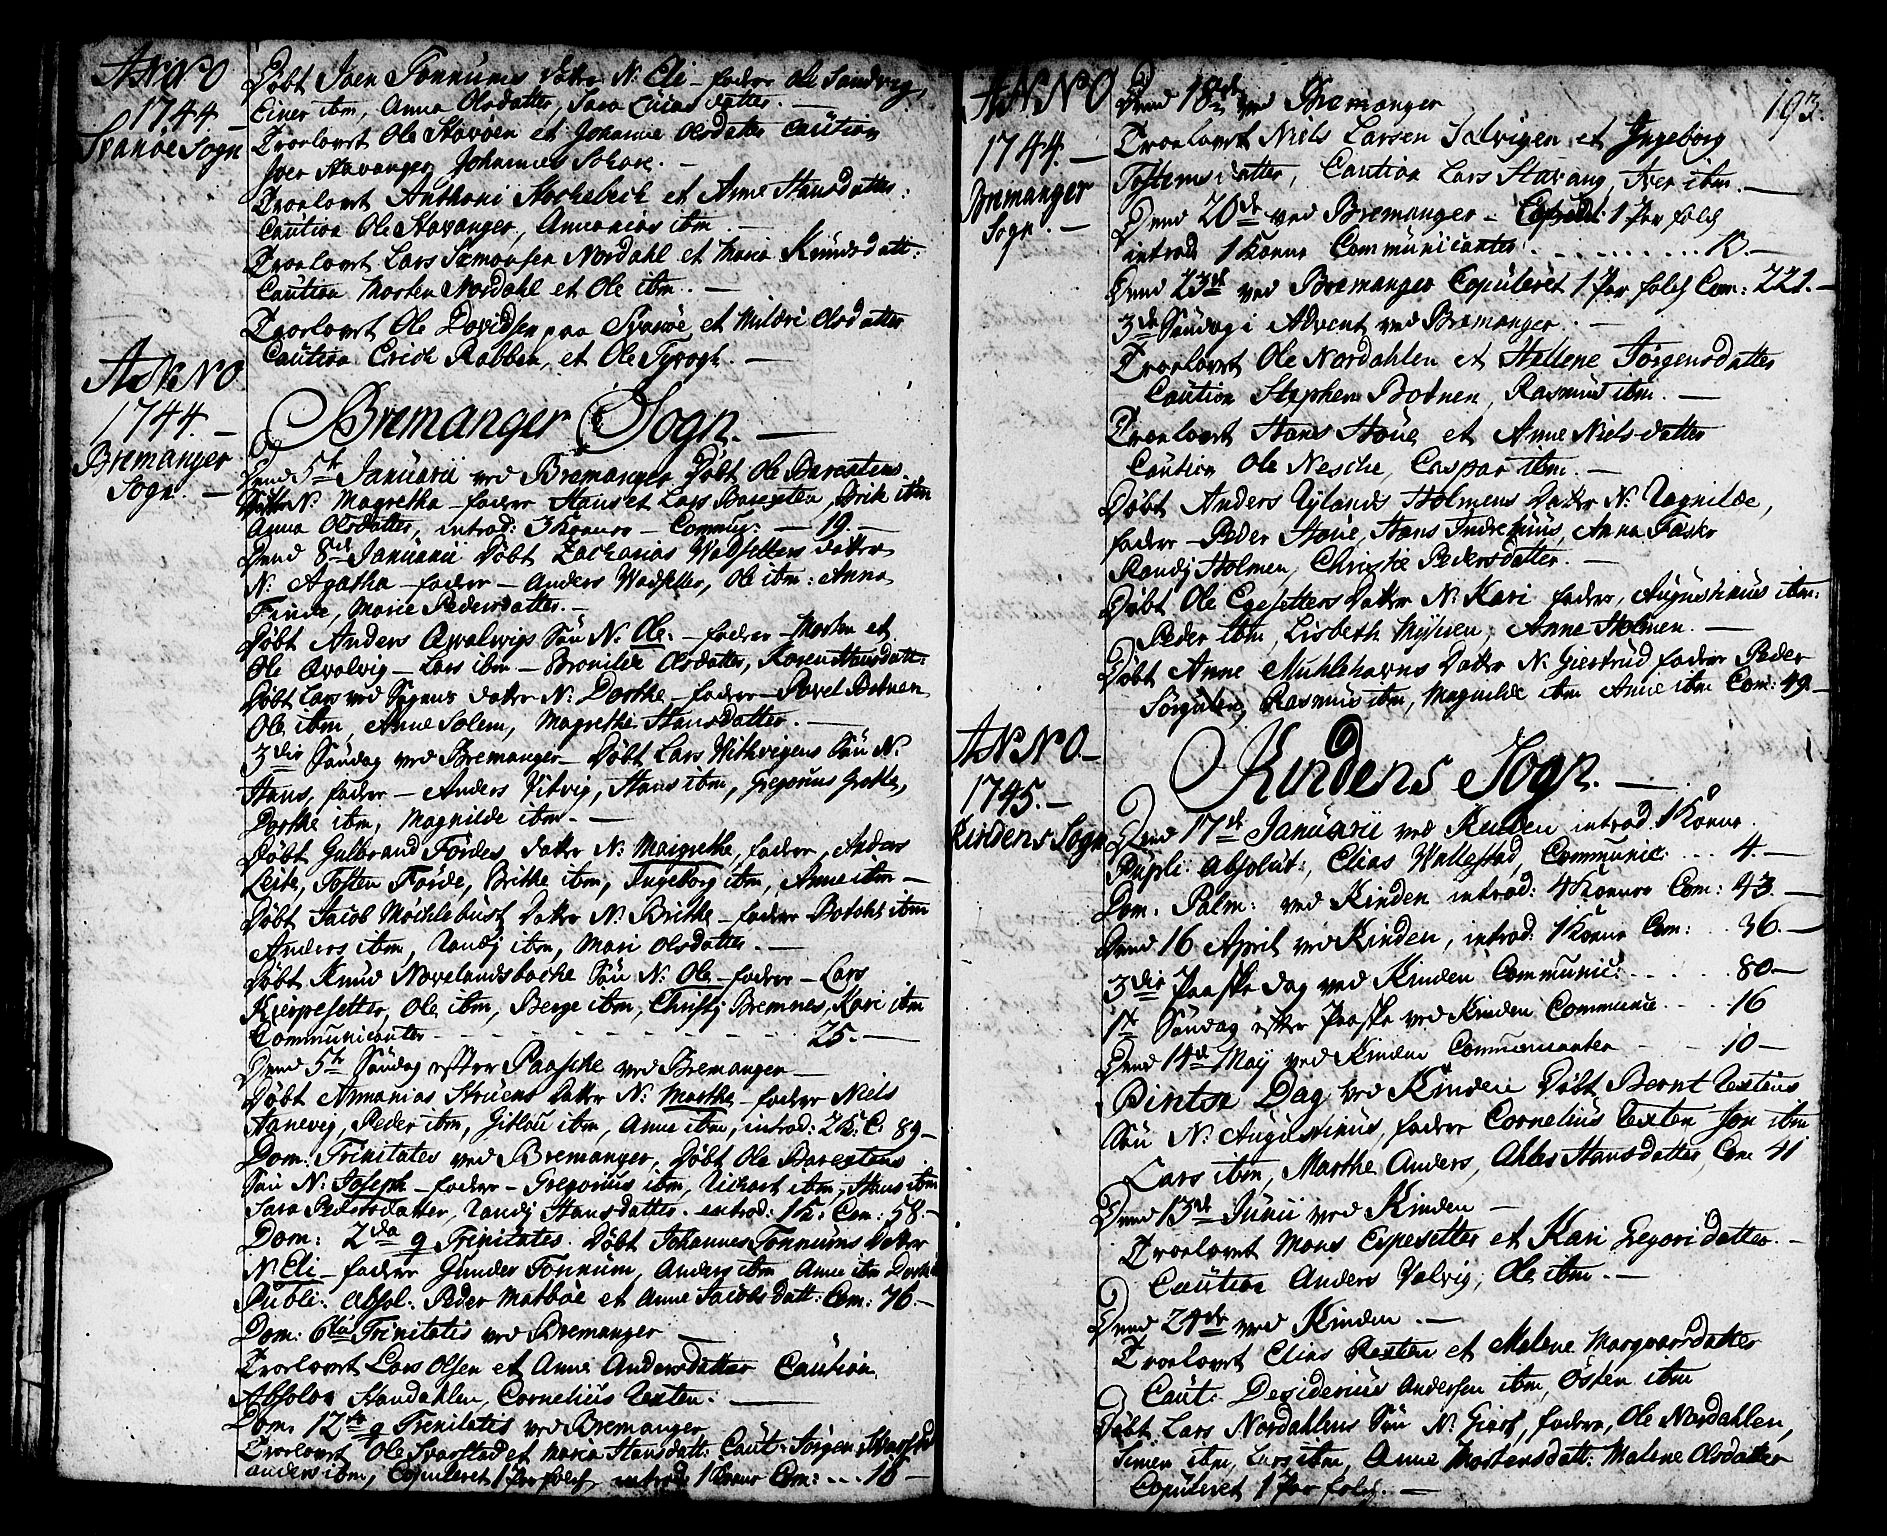 ANNO
1744.
Svanøe Sogn
Døbt Joen Tonnums datter N: Eli – fadder Ole Sandvig,
Einer ibm, Anna Olsdatter, Sara Eliasdatter. —
Troelovet Ole Stavøen et Johanne Olsdatter Caution
Iver Stavanger Johannes
Troelovet Anthoni et Anne Hansdatter:
Caution Ole Stavanger, Annanias ibm —
Troelovet Lars Simonsen Nordahl et Maria Knudsdatt:
Caution Morten Nordahl et Ole ibm. —
Troelovet Ole Davidsen paa Svanøe et Mildri Olsdatter
Caution Erich Rabben, et Ole —
ANNO
1744. —
Bremanger
Sogn. —
Bremanger Sogn. —
Dend 5te Januarii ved Bremanger Døbt Ole Barestens
Datter N: Magretha – fadder Hans et Lars Baresten, Erik ibm
Anna Olsdatter, introd: 3 Koner – Commu: — 19. —
Dend 8de Januarii Døbt Zacharias Wadsetters datter
N: Agatha – fadder – Anders Wadsetter, Ole ibm: Anna
Finde, Marie Pedersdatter. —
Døbt Anders Qvalvigs Søn N: Ole. – fadder – Morten et
Ole Qvalvig – Lars ibm – Bronilde Olsdatter, Karen Hansdatt:
Døbt Lars ved datter N: Dorthe – fadder – Povel Botnen
Ole ibm, Anne Solem, Magrethe Hansdatter. —
3die Søndag ved Bremanger – Døbt Lars Withvigens Søn N:
Hans, fadder – Anders Vitvig, Hans ibm, Gregorius
Dorthe ibm, Magnilde ibm – —
Døbt Gulbrand Førdes datter N: Maigrethe, fadder, Anders
Leite, Tosten Førde, Brithe ibm, Ingeborg ibm, Anne ibm —
Døbt Jacob Møchlebust Datter N: Brithe – fadder Botohlt ibm
Anders ibm, Randj ibm, Mari Olsdatter. —
Døbt Knud Novelandsbache Søn N: Ole – fadder – Lars
Kierpesetter, Ole ibm, Berge ibm, Christj Bremnes, Kari ibm
Communicanter - - - - - - - 25. —
Dend 5te Søndag efter Paaske ved Bremanger —
Døbt Annanias datter N: Marthe – fadder Niels
Hanevig, Peder ibm, Gitlou ibm, Anne ibm, introd: 2 K: C. 89 —
Dom: Trinitates ved Bremanger, Døbt Ole Barestens
Søn N: Joseph – fadder – Gregorius ibm, Richart ibm, Hans ibm
Sara Pedersdatter, Randj Hansdatter. introd: 1 K: Com: 58. —
Dom: 2da p Trinitates. Døbt Johannes Tonnums Datter
N: Eli – fadder Gunder Tonnum, Anders ibm Anne ibm
Publi: absol: Peder Matbøe et Anne Jacobs datt: Com: 76. —
Dom: 6ta Trinitatis ved Bremanger —
Troelovet Lars Olsen et Anne Andersdatter Caution
Absolon Standahlen, Cornelius Rexten. —
Dom. 12te p Trinitatis ved Bremanger
Troelovet Ole Svarstad et Maria Hansdatt: Caut: Jørgen Svarstad
anders ibm, Copuleret 1 Par folch introd 1 Kone Com: ... 16 —
ANNO
1744. —
Bremanger
Sogn. —
193.
Dend 18de ved Bremanger
Troelovet Niels Larsen Indvigen et Ingeborg
Tostensdatter, Caution Lars Stavang, Iver ibm. —
Dend 20de ved Bremanger – Copulet: 1 Par folch
introd 1 Kone Communicanter: . . . . . . . . . 13. —
Dend 23de ved Bremanger Copuleret 1 Par folch Com: 221. —
3de Søndag i Advent ved Bremanger. —
Troelovet Ole Nordahlen et Hellene Jørgensdatter
Caution Stephen Botnen, Rasmus ibm. —
Troelovet Hans Høue et Anne Nielsdatter
Caution Ole Nesche, Caspar ibm. —
Døbt Anders Rylands Holmens Datter N: Ragnilde,
fadder – Peder Høue, Hans Indrehuus, Anna Faske
Randj Holmen, Christie Pedersdatter. —
Døbt Ole Egesetters Datter N: Kari fadder, Augustinus ibm:
Peder ibm, Lisbeth Myhren, Anne Holmen. —
Døbt Anne Muhlehavns Datter N: Giertrud fadder Peder
Sørgulen, Rasmus ibm, Magnilde ibm Anne ibm Com: 49 —
ANNO —
1745. —
Kindens Sogn
Kindens Sogn. —
Dend 17de Januarii ved Kinden introd. 1 Kone.
Publi: absolut:, Elias Wallestad, Communic: . . . 4. —
Dom: Palm: ved Kinden introd: 4 Koner Com: 43. —
Dend 16 April ved Kinden, introd: 1 Kone Com: . . 36. —
3die Paaske dag ved Kinden Communic: . . . . . 80 —
1te Søndag efter Paaske ved Kinden Communic . . . 16
Dend 14de Maij ved Kinden Communicanter - - 10 —
Pintse Dag ved Kinden Døbt Bernt Rextens
Søn N: Augustinus, fadder Cornelius Rexten Jon ibm
Lars ibm, Marthe Anders, Ahlet Hansdatter, Com 41
Dend 13de Junii ved Kinden —
Troelovet Mons Espesetter et Kari Gregoridatter. —
Caution Anders Valvig, Ole ibm. —
Dend 24de ved Kinden. —
Troelovet Elias Rexten et Malene Marqvarsdatter
Caut: Desiderius Andersen ibm, Østen ibm
Døbt Lars Nordahlens Søn N: Giert, fadder, Ole Nordahlen,
Simen ibm, Lars ibm, Anne Mortensdatt: Malene Olsdatter
Copuleret 1 Par folch. —